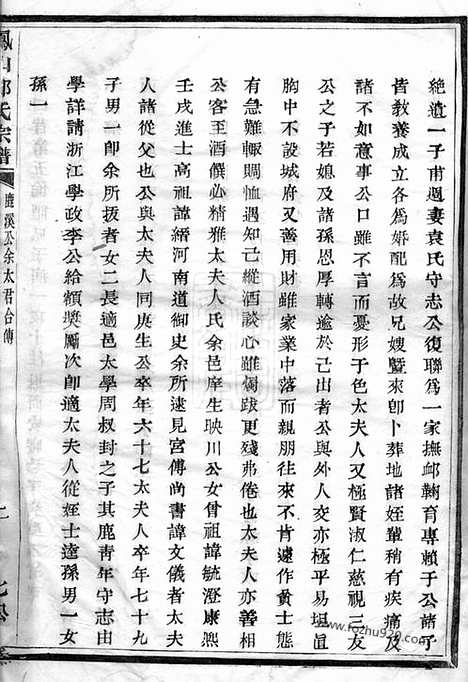 絶遺一子甫週妻袁氏守志公復聯爲一家撫邮鞠育專賴于公諸子
皆敎養成立各爲婚配爲故兄嫂暨來卽卜葬地諸姪輩稍有疾痛及
諸不如意事公口雖不言而憂形于色太夫人又極賢淑仁慈視三友
公之子若媳及諸孫恩厚轉逾於己出公與外人交亦極平易坦直
胸中不設城府又善用財雖家業中落而親朋往來不肯遽作貴士態
有急難輒賙恤遇知己縱酒談心雖燭跋更殘弗倦也太夫人亦善相
公客至酒饌必精雅太夫人氏余邑庠生映川公女曾祖諱毓澄康熙
壬戌進士高祖諱縉河南道御史余所逮見宮傅尚書諱文儀者太夫
人諸從父也公與太夫人同庚生公卒年六十七太夫人卒年七十九
子男一卽余所授者女二長適邑太學周叔封之子其鹿靑年守志由
學詳請浙江學政李公給額獎屬次卽適太夫人從姪士達孫男一女
孫一
氏宗譜
鹿溪公余太君合傳
www.fozhu920.com